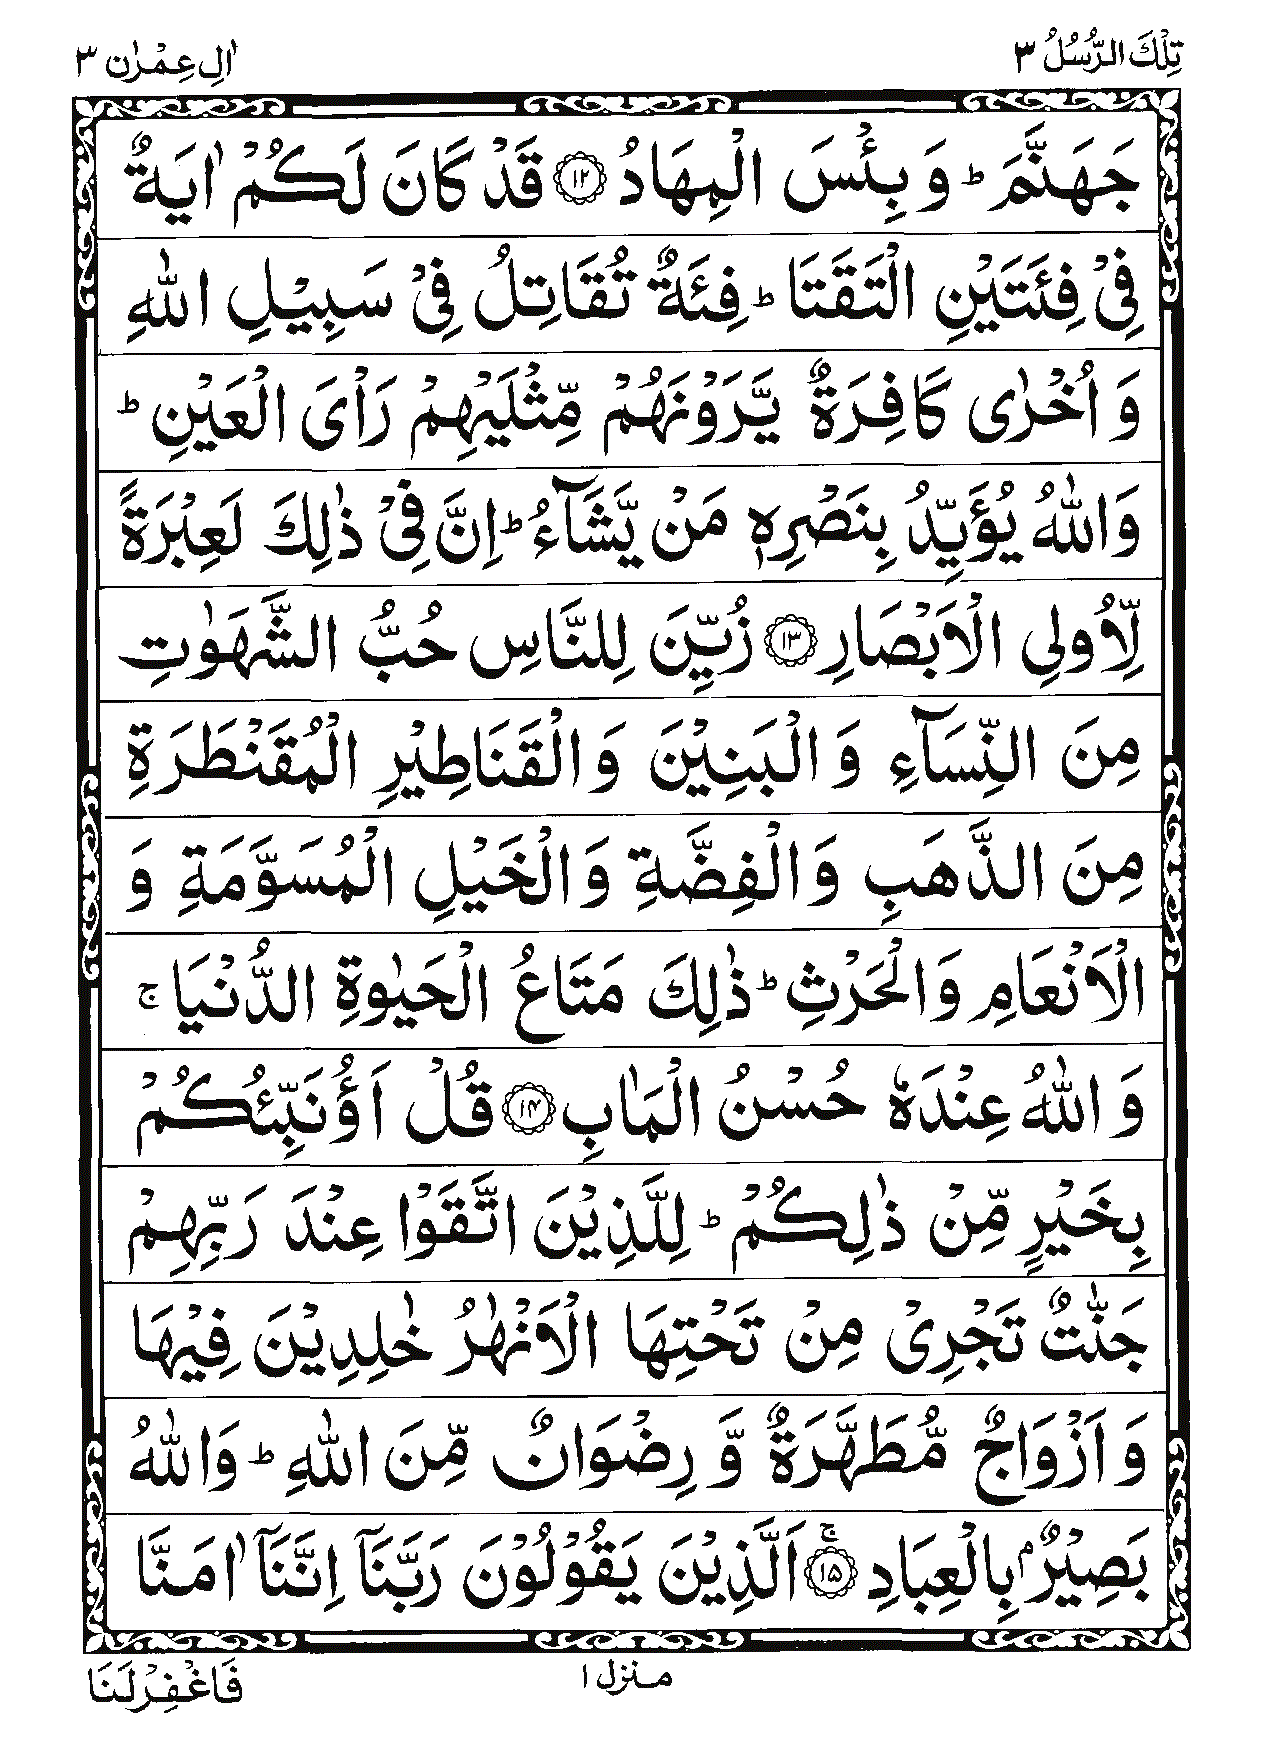 تِلْكَ الرُّسُلُ ٣
اٰلِ عِمْرٰن ٣
جَهَنَّمَ ؕ وَ بِئْسَ الْمِهَادُ ﴿۱۲﴾ قَدْ كَانَ لَكُمْ اٰيَةٌ
فِیْ فِئَتَيْنِ الْتَقَتَا ؕ فِئَةٌ تُقَاتِلُ فِیْ سَبِيْلِ اللّٰهِ
وَ اُخْرٰى كَافِرَةٌ يَّرَوْنَهُمْ مِّثْلَيْهِمْ رَاْیَ الْعَيْنِ ؕ
وَاللّٰهُ يُؤَيِّدُ بِنَصْرِهٖ مَنْ يَّشَآءُ ؕ اِنَّ فِیْ ذٰلِكَ لَعِبْرَةً
لِّاُولِی الْاَبْصَارِ ﴿۱۳﴾ زُيِّنَ لِلنَّاسِ حُبُّ الشَّهَوٰتِ
مِنَ النِّسَآءِ وَ الْبَنِيْنَ وَ الْقَنَاطِيْرِ الْمُقَنْطَرَةِ
مِنَ الذَّهَبِ وَ الْفِضَّةِ وَ الْخَيْلِ الْمُسَوَّمَةِ وَ
الْاَنْعَامِ وَ الْحَرْثِ ؕ ذٰلِكَ مَتَاعُ الْحَيٰوةِ الدُّنْيَا ۚ
وَ اللّٰهُ عِنْدَهٗ حُسْنُ الْمَاٰبِ ﴿۱۴﴾ قُلْ اَؤُنَبِّئُكُمْ
بِخَيْرٍ مِّنْ ذٰلِكُمْ ؕ لِلَّذِيْنَ اتَّقَوْا عِنْدَ رَبِّهِمْ
جَنّٰتٌ تَجْرِیْ مِنْ تَحْتِهَا الْاَنْهٰرُ خٰلِدِيْنَ فِيْهَا
وَ اَزْوَاجٌ مُّطَهَّرَةٌ وَّ رِضْوَانٌ مِّنَ اللّٰهِ ؕ وَاللّٰهُ
بَصِيْرٌۢ بِالْعِبَادِ ﴿۱۵﴾ۚ اَلَّذِيْنَ يَقُوْلُوْنَ رَبَّنَاۤ اِنَّنَاۤ اٰمَنَّا
منزل ١
فَاغْفِرْ لَنَا